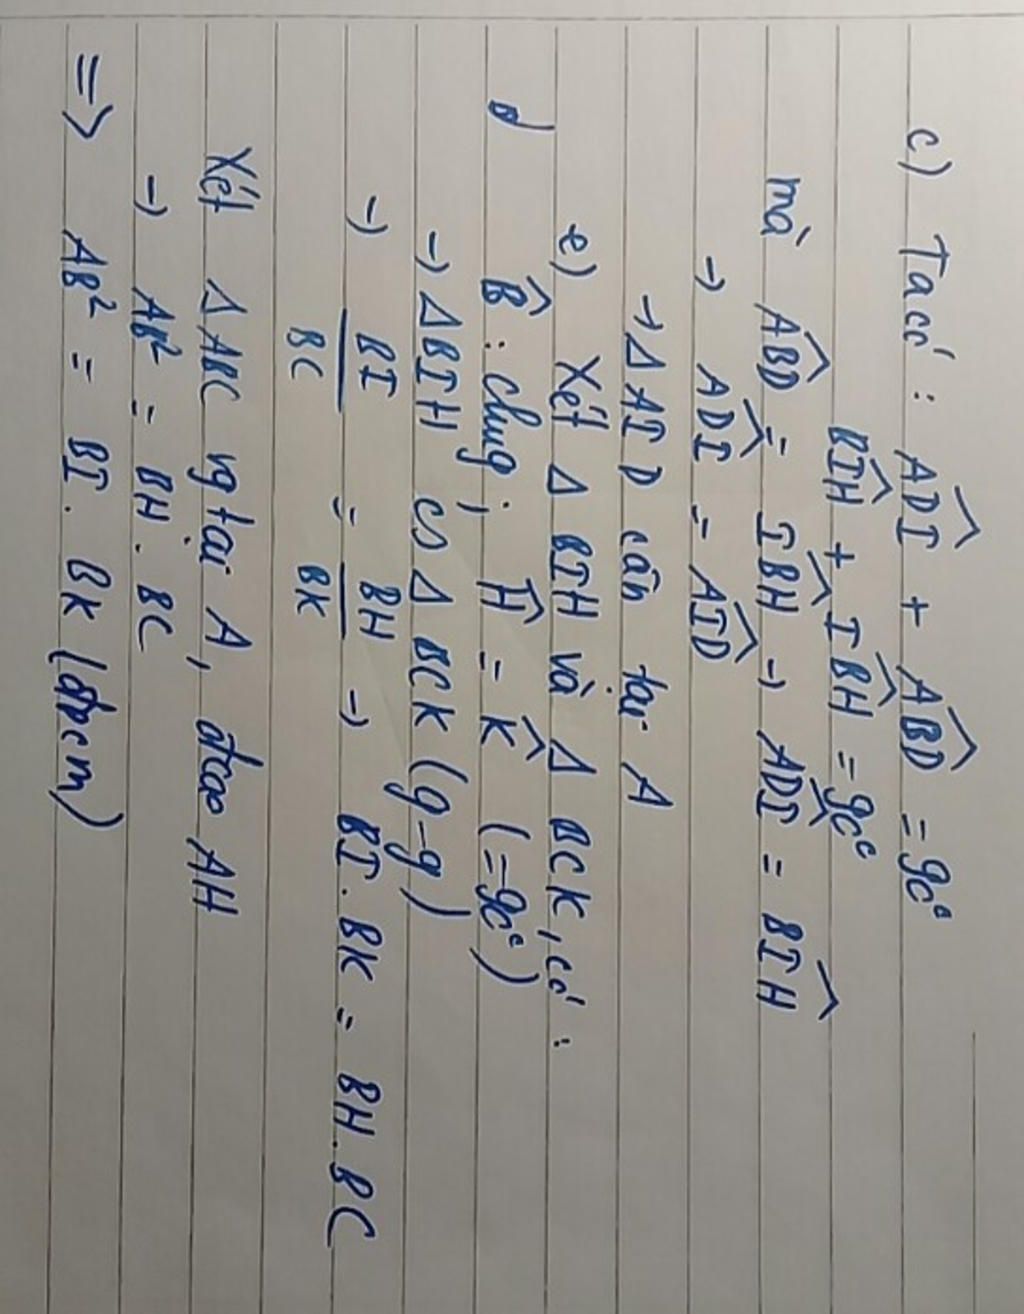 c) Ta có : ADI + ABD = 90°
BIH + IBH = 90°
mà ABD = IBH → ADI = BIH
→ ADI = AID
→ Δ AID cân tại A
e) Xét Δ BIH và Δ BCK, có :
B : chung ; H = K (=90°)
→ Δ BIH ∽ Δ BCK (g-g)
→ BI/BC = BH/BK → BI . BK = BH . BC
Xét Δ ABC vg tại A, đcao AH
→ AB² = BH . BC
=> AB² = BI . BK (đpcm)